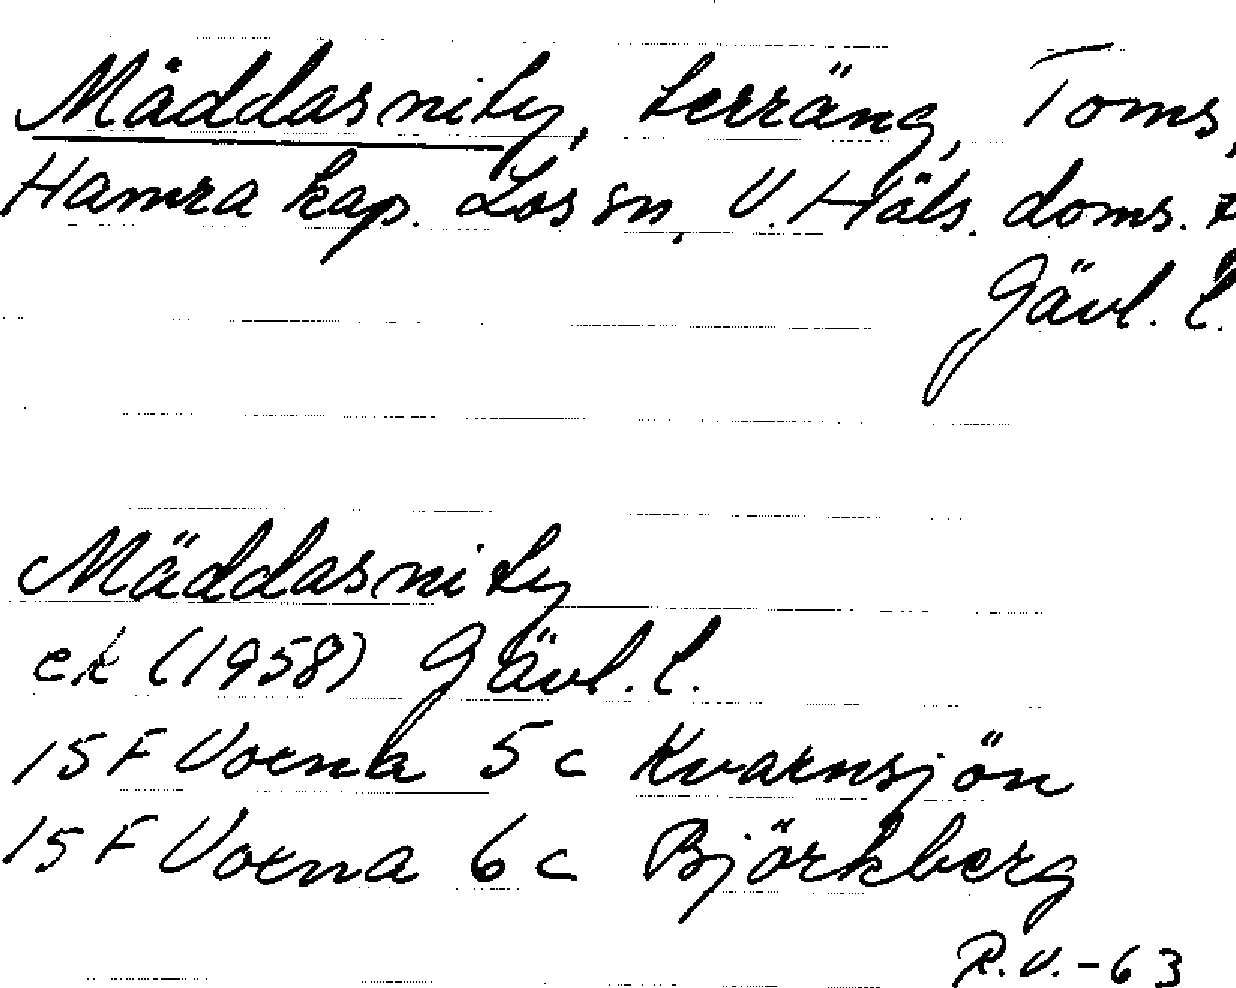 Mäddasnity, terräng, Toms,
Hamra kap. Los sn, V. Häls. doms.
Gävl. l.
Mäddasnity
ek (1958) Gävl. l.
15 F Voxna 5 c Kvarnsjön
15 F Voxna 6 c Björkberg
R.V.-63